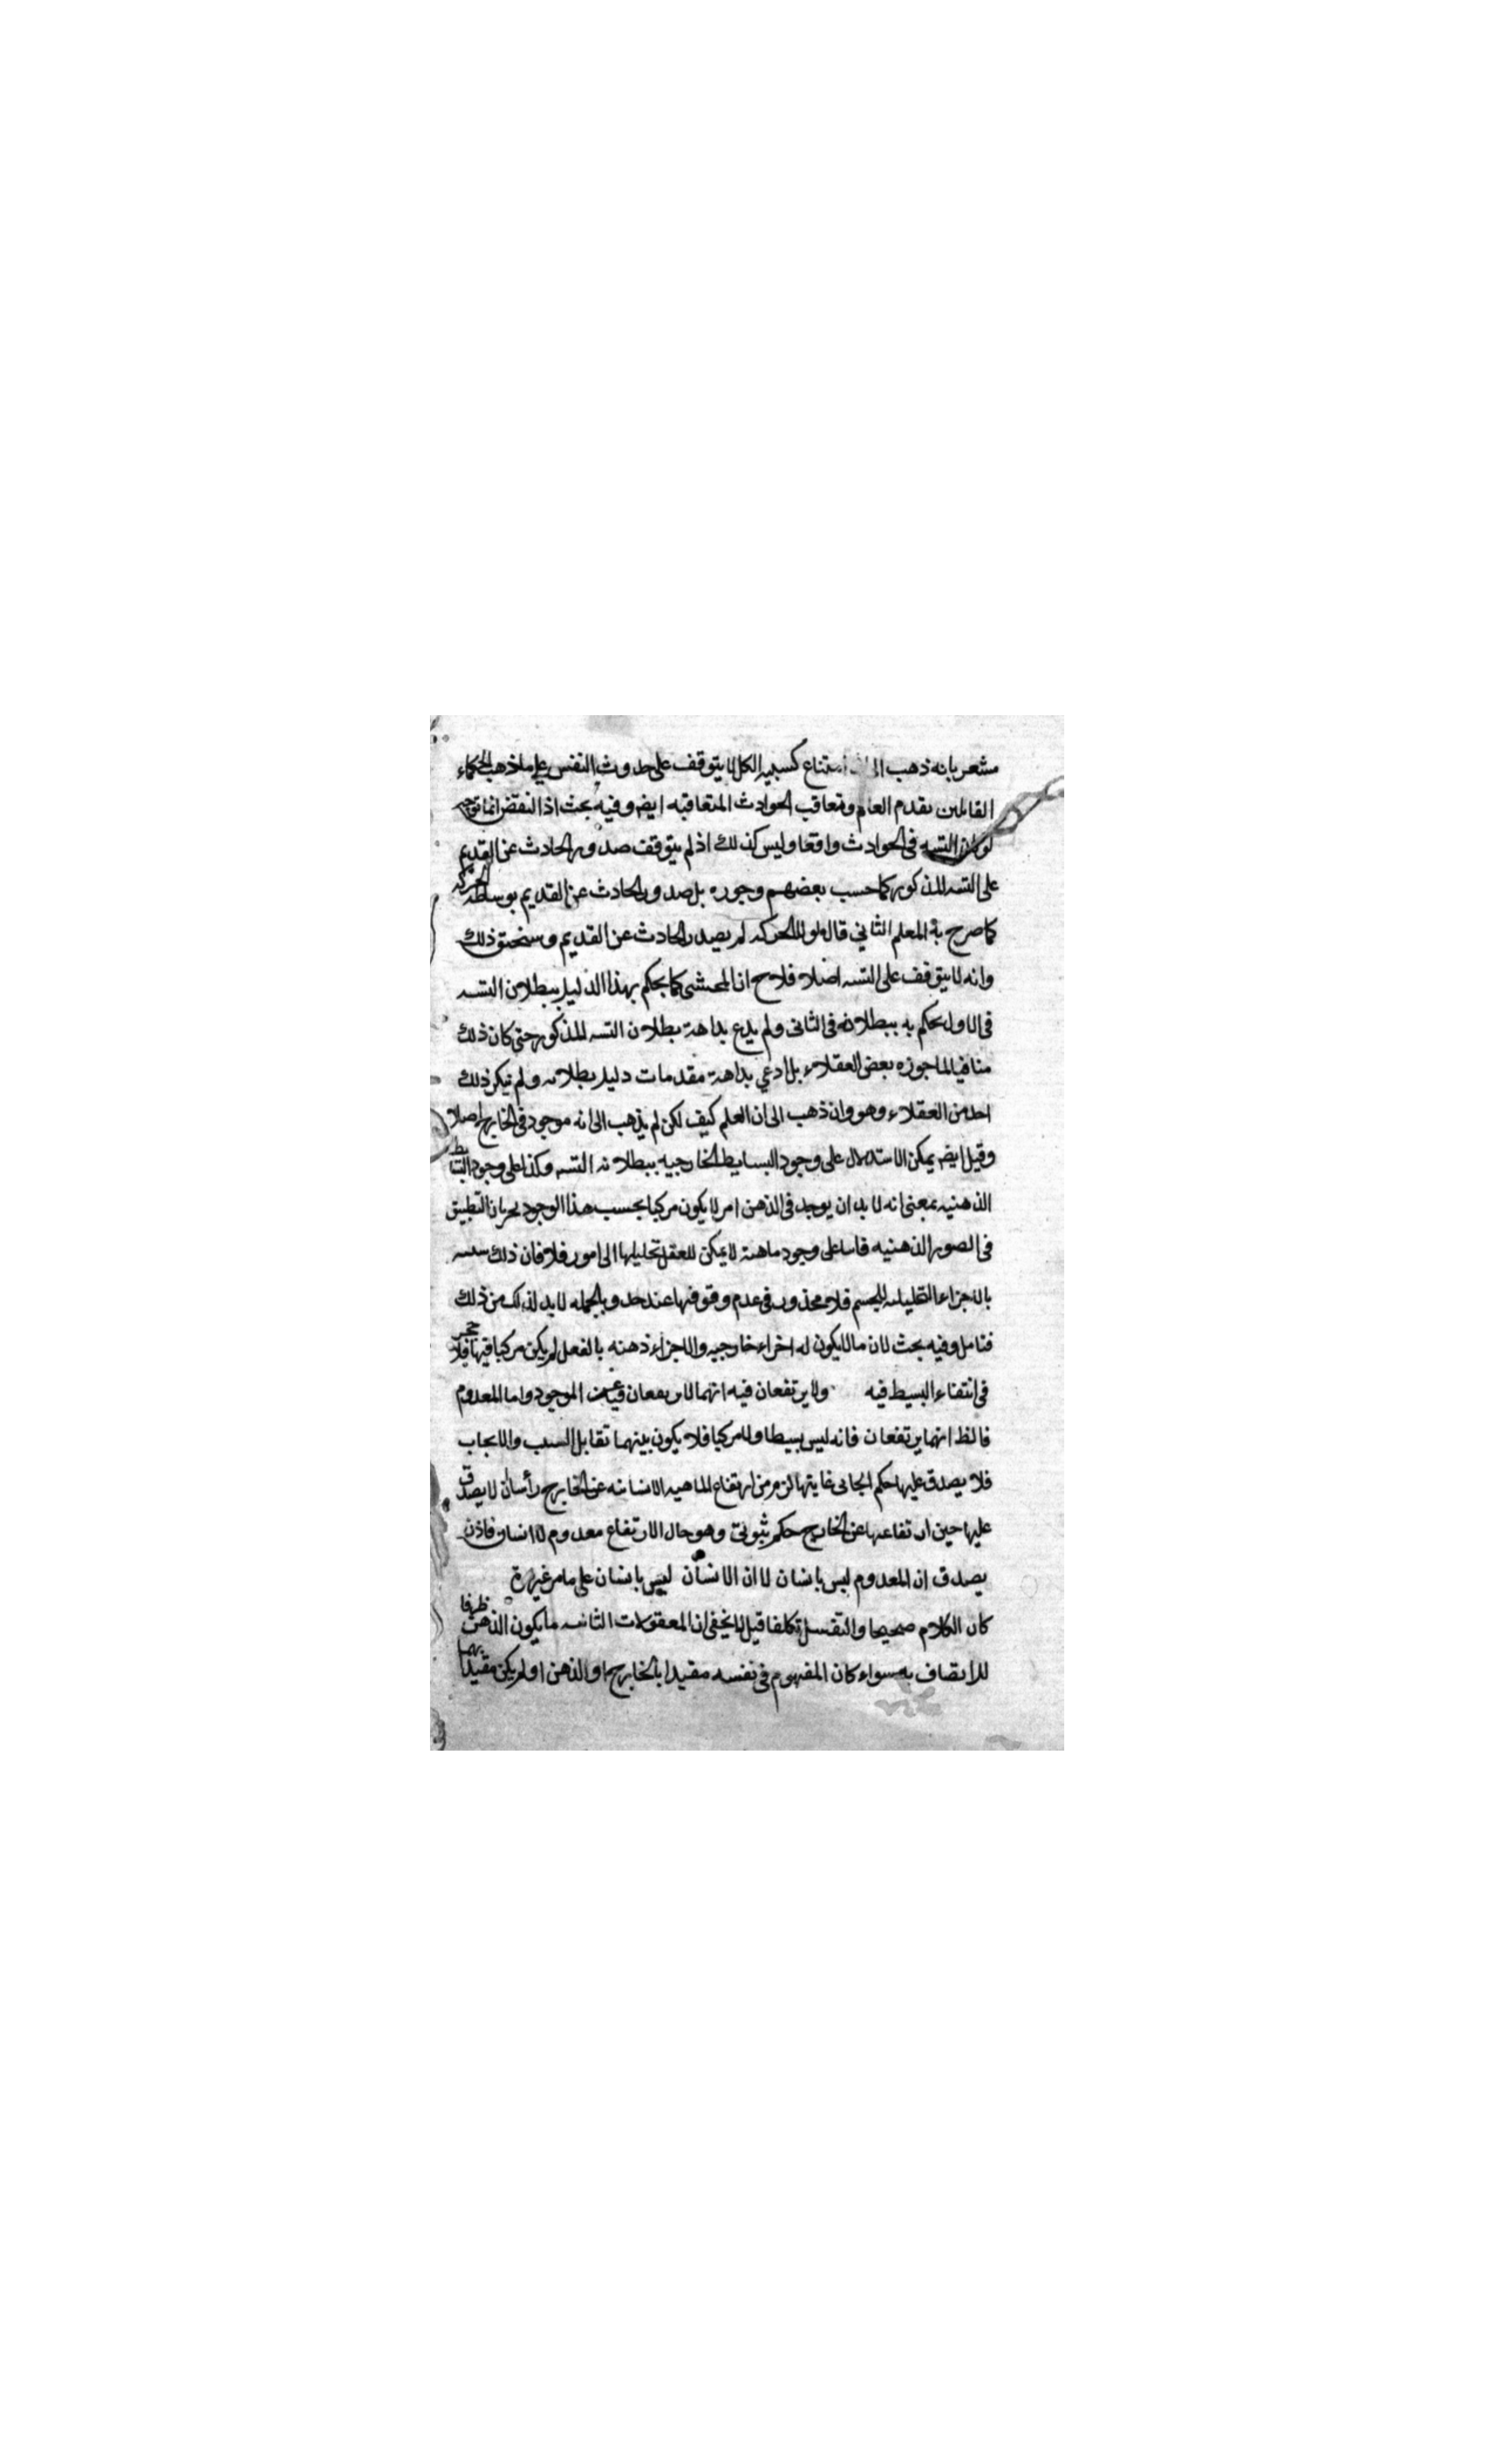 مشعر بانه ذهب امتناع كسبيه الكل لا يتوقف على حدوث النفس على ما ذهب الحكماء
القايلين بقدم العالم وتعاقب الحوادث المتعاقبه ايضا وفيه بحث اذ النقض انما توجه
لو كان التسه فى الحوادث واقعا وليس كذلك اذ لم يتوقف صدور الحادث عن القديم
على التسه المذكور كما حسب بعضهم وجوزه بل صدور الحادث عن القديم بوسطة الحركه
كما صرح به المعلم الثاني قال لولا الحركه لم يصدر الحادث عن القديم وسنحقق ذلك
وانه لا يتوقف على التسه اصلا فلاح ان المحشى كما يحكم بهذا الدليل ببطلان التسه
فى الاول يحكم به ببطلانه فى الثانى ولم يدع بداهة بطلان التسه المذكور حتى كان ذلك
منافيا لما جوزه بعض العقلاء بل ادعي بداهة مقدمات دليل بطلانه ولم ينكر ذلك
احد من العقلاء وهو وان ذهب الى ان العلم كيف لكن لم يذهب الى انه موجود فى الخارج اصلا
وقيل ايضه يمكن الاستدلال على وجود البسايط الخارجيه ببطلانه التسه وكذا على وجود البسايط
الذهنيه بمعنى انه لا بد ان يوجد فى الذهن امر لا يكون مركبا بحسب هذا الوجود لجريان التطبيق
فى الصور الذهنيه فاما على وجود ماهية لا يمكن للعقل تحليلها الى امور فلا فان ذلك
بالاجزاء التحليليه للجسم فلا محذور فى عدم وقوفها عند حد وبالجمله لا بد لذلك من ذلك
فتامل وفيه بحث لان ما لا يكون له اجزاء خارجيه والاجزاء ذهنه بالفعل لم يكن مركبا فيها فلا
فى انتفاء البسيط فيه ولا يرتفعان فيه انهما لا يرتفعان فى الموجود واما المعدوم
فالظ انهما يرتفعان فانه ليس بسيطا ولا مركبا فلا يكون بينهما تقابل السلب والايجاب
فلا يصدق عليها حكم ايجابى غايتها لزم من ارتفاع الماهيه الانسانيه عن الخارج رأسا ان لا يصدق
عليها حين ارتفاعها عن الخارج حكم ثبوتى وهو حال الارتفاع معدوم لا انسان فاذن
يصدق ان المعدوم ليس بانسان لا ان الانسان ليس بانسان على ما مر غير مرة
كان الكلام صحيحا والتفسير تكلفا قيل لا يخفى ان المعقولات الثانيه ما يكون الذهن ظرفا
للاتصاف به سواء كان المفهوم فى نفسه مقيدا بالخارج او الذهن او لم يكن مقيدا بهما